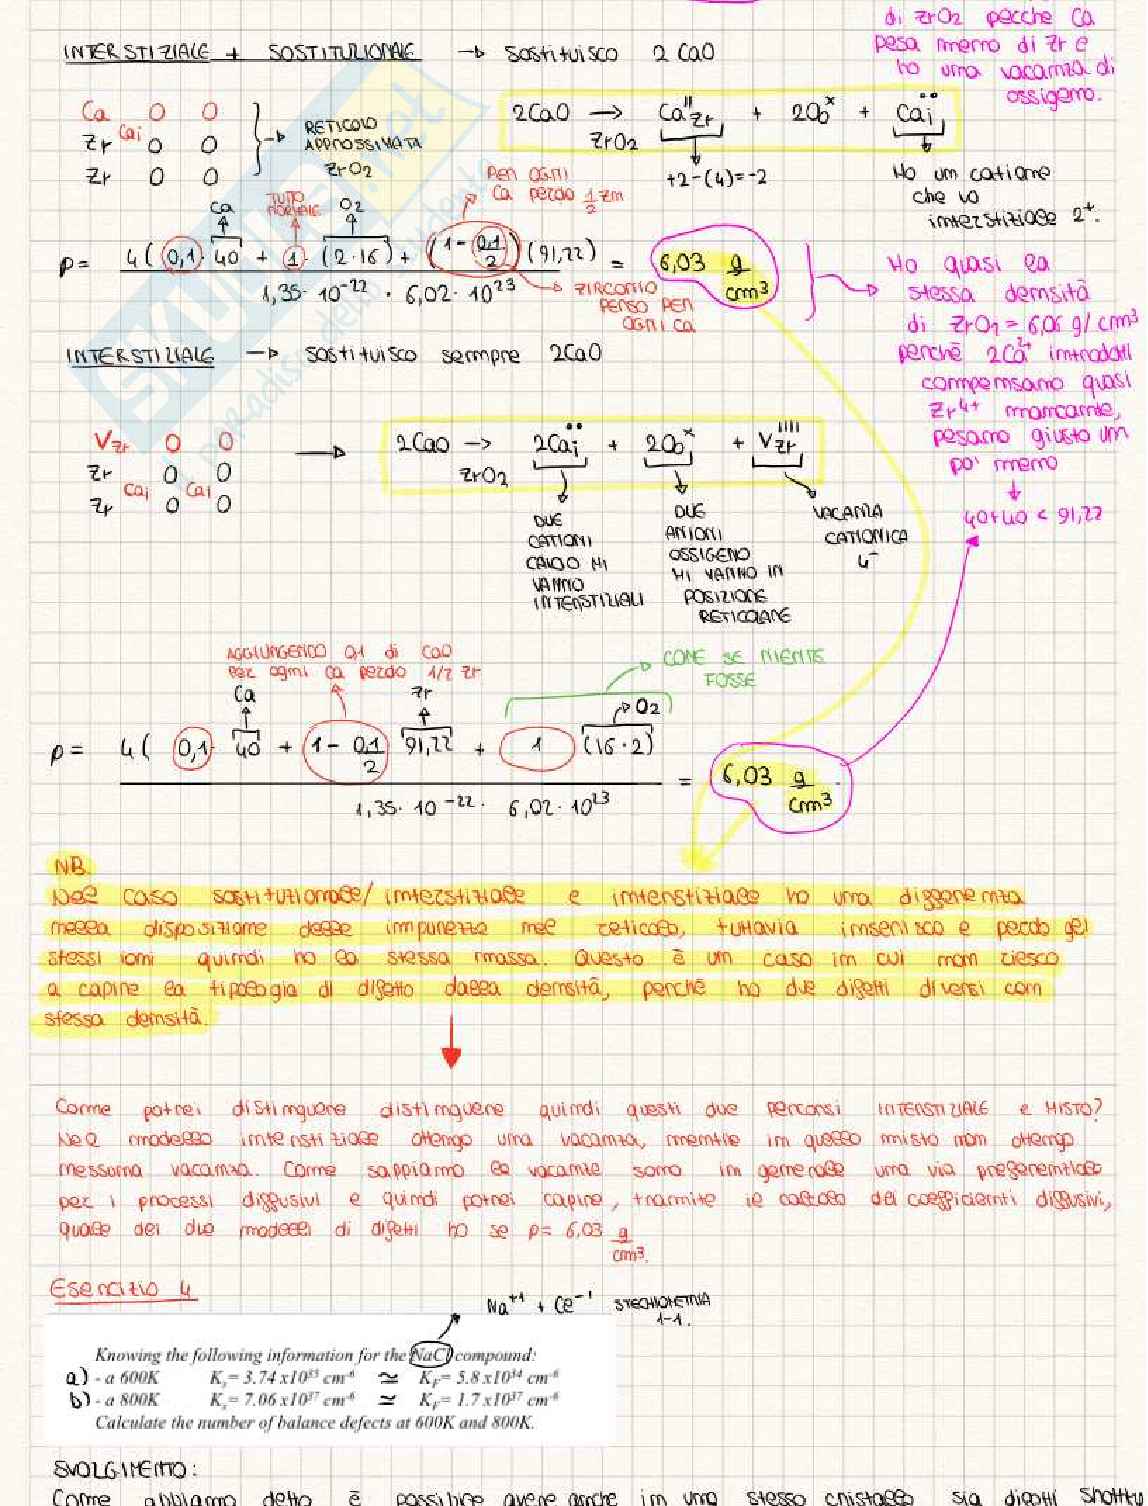 di ZrO2 perché Ca
pesa meno di Zr e
ho una vacanza di
ossigeno.
INTERSTIZIALE + SOSTITUZIONALE → sostituisco 2 CaO
2CaO → Ca''Zr + 2Oo^x + Cai^••
ZrO2
Ca O O
Cai
Zr O O
Zr O O
→ RETICOLO
APPROSSIMATA
ZrO2
+2-(4)=-2
Ho un catione
che va
interstiziale 2+.
PER OGNI
Ca perdo 1/2 Zr
Ca
TUTTO
NORMALE
O2
ρ = 4(0,1 · 40 + 1 · (2·16) + (1 - 0,1/2)(91,22)) / 1,35·10^-22 · 6,02·10^23 = 6,03 g/cm³
ZIRCONIO
PERSO PER
OGNI Ca
Ho quasi la
stessa densità
di ZrO2 = 6,06 g/cm³
perché 2Ca²⁺ introdotti
compensano quasi
Zr⁴⁺ mancante,
pesano giusto un
po' meno
↓
40+40 < 91,22
INTERSTIZIALE → sostituisco sempre 2CaO
VZr O O
Zr O O
Cai Cai
Zr O O
→
2CaO → 2Cai^•• + 2Oo^x + VZr''''
ZrO2
DUE
CATIONI
CALCIO MI
VANNO
INTERSTIZIALI
DUE
ANIONI
OSSIGENO
MI VANNO IN
POSIZIONE
RETICOLARE
VACANZA
CATIONICA
4-
AGGIUNGENDO 0,1 di CaO
per ogni Ca perdo 1/2 Zr
COME SE NIENTE
FOSSE
Ca
Zr
O2
ρ = 4(0,1 · 40 + 1 - 0,1/2 91,22 + 1 (16·2)) / 1,35·10^-22 · 6,02·10^23 = 6,03 g/cm³
NB.
Nel caso sostituzionale/interstiziale e interstiziale ho una differenza
nella disposizione delle impurezze nel reticolo, tuttavia inserisco e perdo gli
stessi ioni quindi ho la stessa massa. Questo è un caso in cui non riesco
a capire la tipologia di difetto dalla densità, perché ho due difetti diversi con
stessa densità.
Come potrei distinguere distinguere quindi questi due percorsi INTERSTIZIALE e MISTO?
Nel modello interstiziale ottengo una vacanza, mentre in quello misto non ottengo
nessuna vacanza. Come sappiamo le vacanze sono in generale una via preferenziale
per i processi diffusivi e quindi potrei capire, tramite il calcolo dei coefficienti diffusivi,
quale dei due modelli di difetti ho se ρ= 6,03 g/cm³.
Esercizio 4
Na⁺¹ + Cl⁻¹ STECHIOMETRIA
1-1.
Knowing the following information for the NaCl compound:
a) - a 600K Ks= 3.74 x10³⁵ cm⁻⁶ ≃ KF= 5.8 x10³⁴ cm⁻⁶
b) - a 800K Ks= 7.06 x10³⁷ cm⁻⁶ ≃ KF= 1.7 x10³⁷ cm⁻⁶
Calculate the number of balance defects at 600K and 800K.
SVOLGIMENTO:
Come abbiamo detto è possibile avere anche in uno stesso cristallo sia difetti Shottky